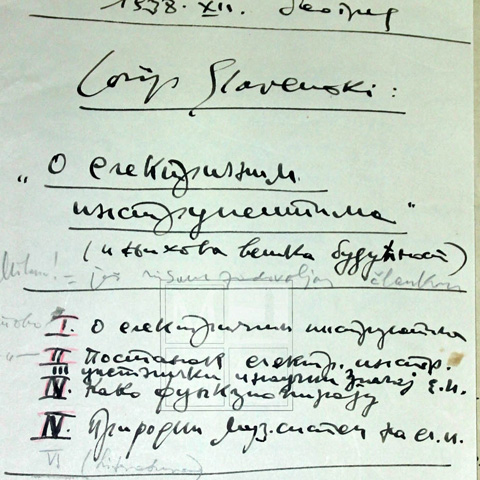 1938. XII. Београд
Josip Slavenski:
„О електричним
инструментима"
(и њихова велика будућност)
Milan! = još nisam zadovoljan člankom
I. О електричним инструментима
II Постанак електр. инстр.
III уметнички и научни значај е.и.
IV. Како функционирају
IV. Природни муз. систем на ел. и.
VI (literatura)